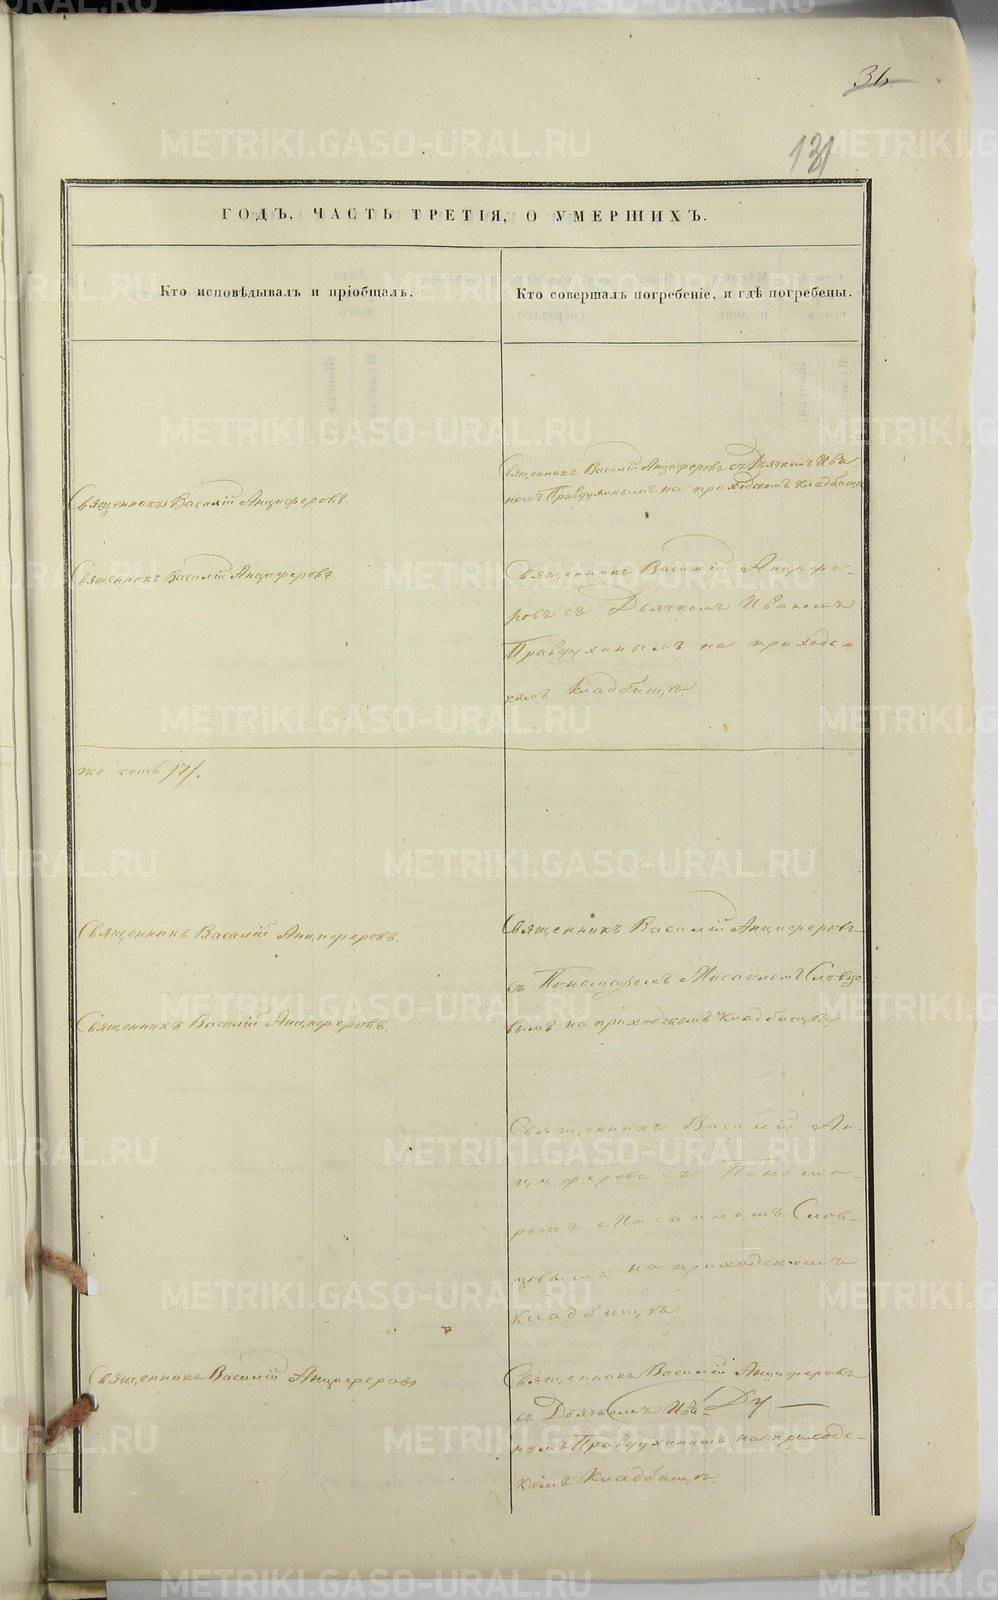 36
131
ГОДЪ, ЧАСТЬ ТРЕТІЯ, О УМЕРШИХЪ.
Кто исповѣдывалъ и пріобщалъ.
Кто совершалъ погребеніе, и гдѣ погребены.
Священникъ Василій Анциферовъ съ Дьячкомъ Ива-
номъ Правдухинымъ на приходскомъ кладбищѣ
Священникъ Василій Анциферовъ.
Священникъ Василій Анциферовъ.
Священникъ Василій Анцифе-
ровъ съ Дьячкомъ Иваномъ
Правдухинымъ на приходс-
комъ кладбищѣ.
Священникъ Василій Анциферовъ.
Священникъ Василій Анциферовъ
съ Пономаремъ Мисаиломъ Словцо
вымъ на приходскомъ кладбищѣ
Священникъ Василій Анциферовъ.
Священникъ Василій Ан-
циферовъ съ Понома-
ремъ Мисаиломъ Слов-
цовымъ на приходскомъ
кладбищѣ.
Священникъ Василій Анциферовъ.
Священникъ Василій Анциферовъ
съ Дьячкомъ Ива-
номъ Правдухинымъ на приходс-
комъ кладбищѣ.
METRIKI.GASO-URAL.RU